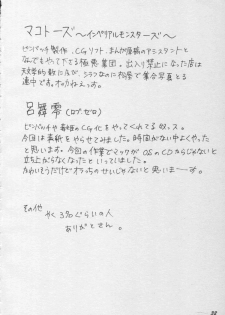 マコトーズ〜インペリアルモンスターズ〜
ピンパッチ製作、CGソフト、まんが原稿のアシスタントと
なんでもやって下さる極悪集団。出入り禁止になった店は
天文学的数にのぼり、シラフなのに松屋で集合写真とる
連中です。オッカねえっス。
呂舞零 (ロブ・ゼロ)
ピンパッチや番組のCG化をやってくれてる奴ッス。
今回は表紙をやらせてみました。時間がない中よくやった
と思います。今回の作業でマックがOSのCDからじゃないと
立ち上がらなくなったといっていました。
かわいそうだけどオラッちのせいじゃないと思いまーす。
その他
やく3名ぐらいの人
ありがとさん。